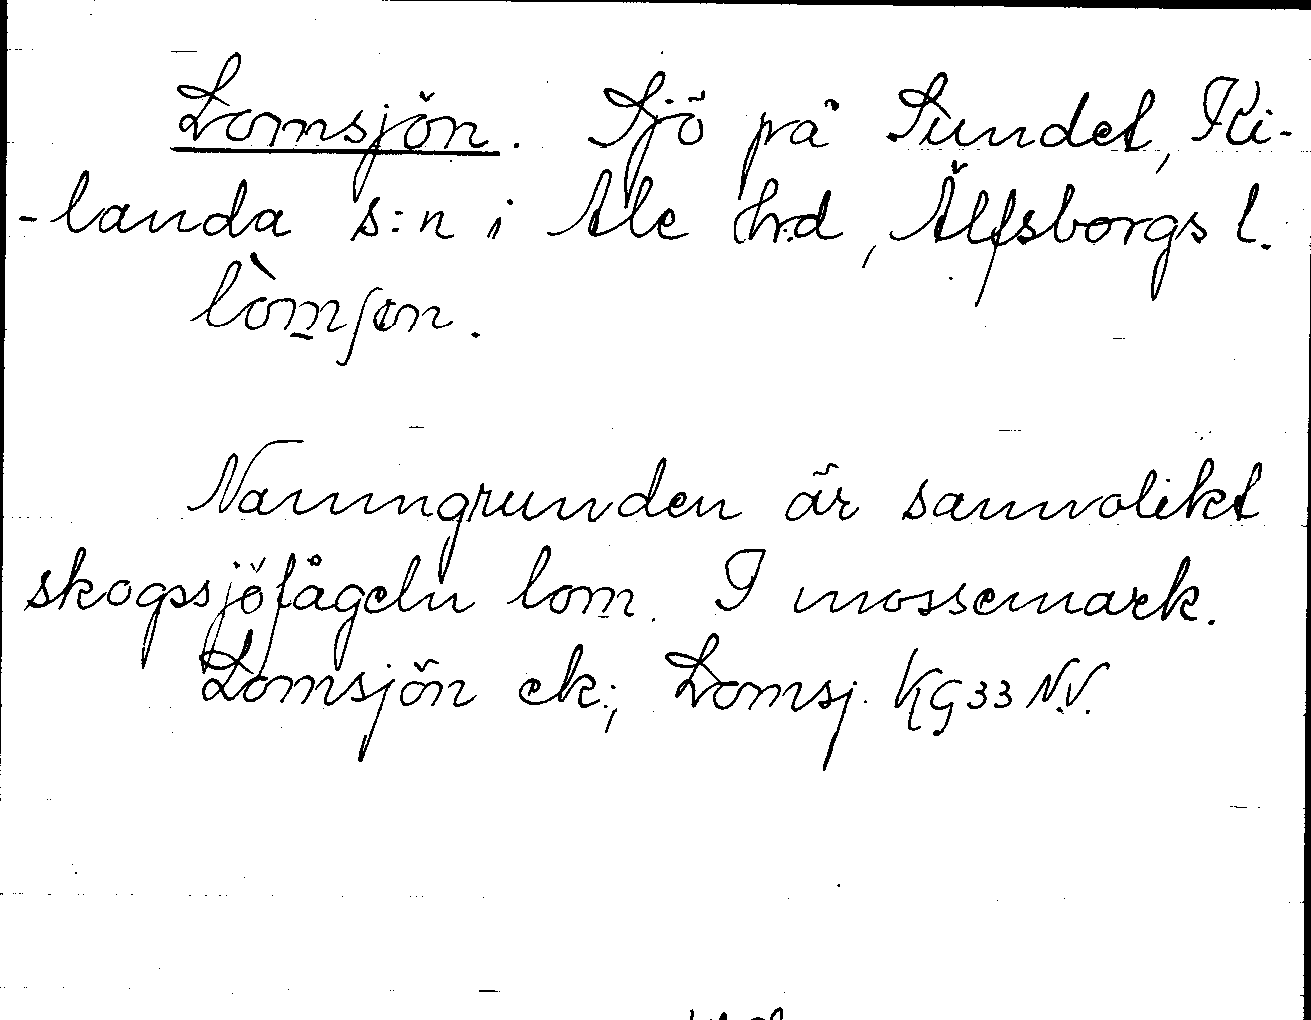 Lomsjön. Sjö på Sundet, Ki-
-landa s:n i Ale hrd, Älfsborgs l.
lòmʃɵn.
Namngrunden är sannolikt
skogssjöfågeln lom. I mossemark.
Lomsjön ek.; Lomsj. KG 33 N.V.